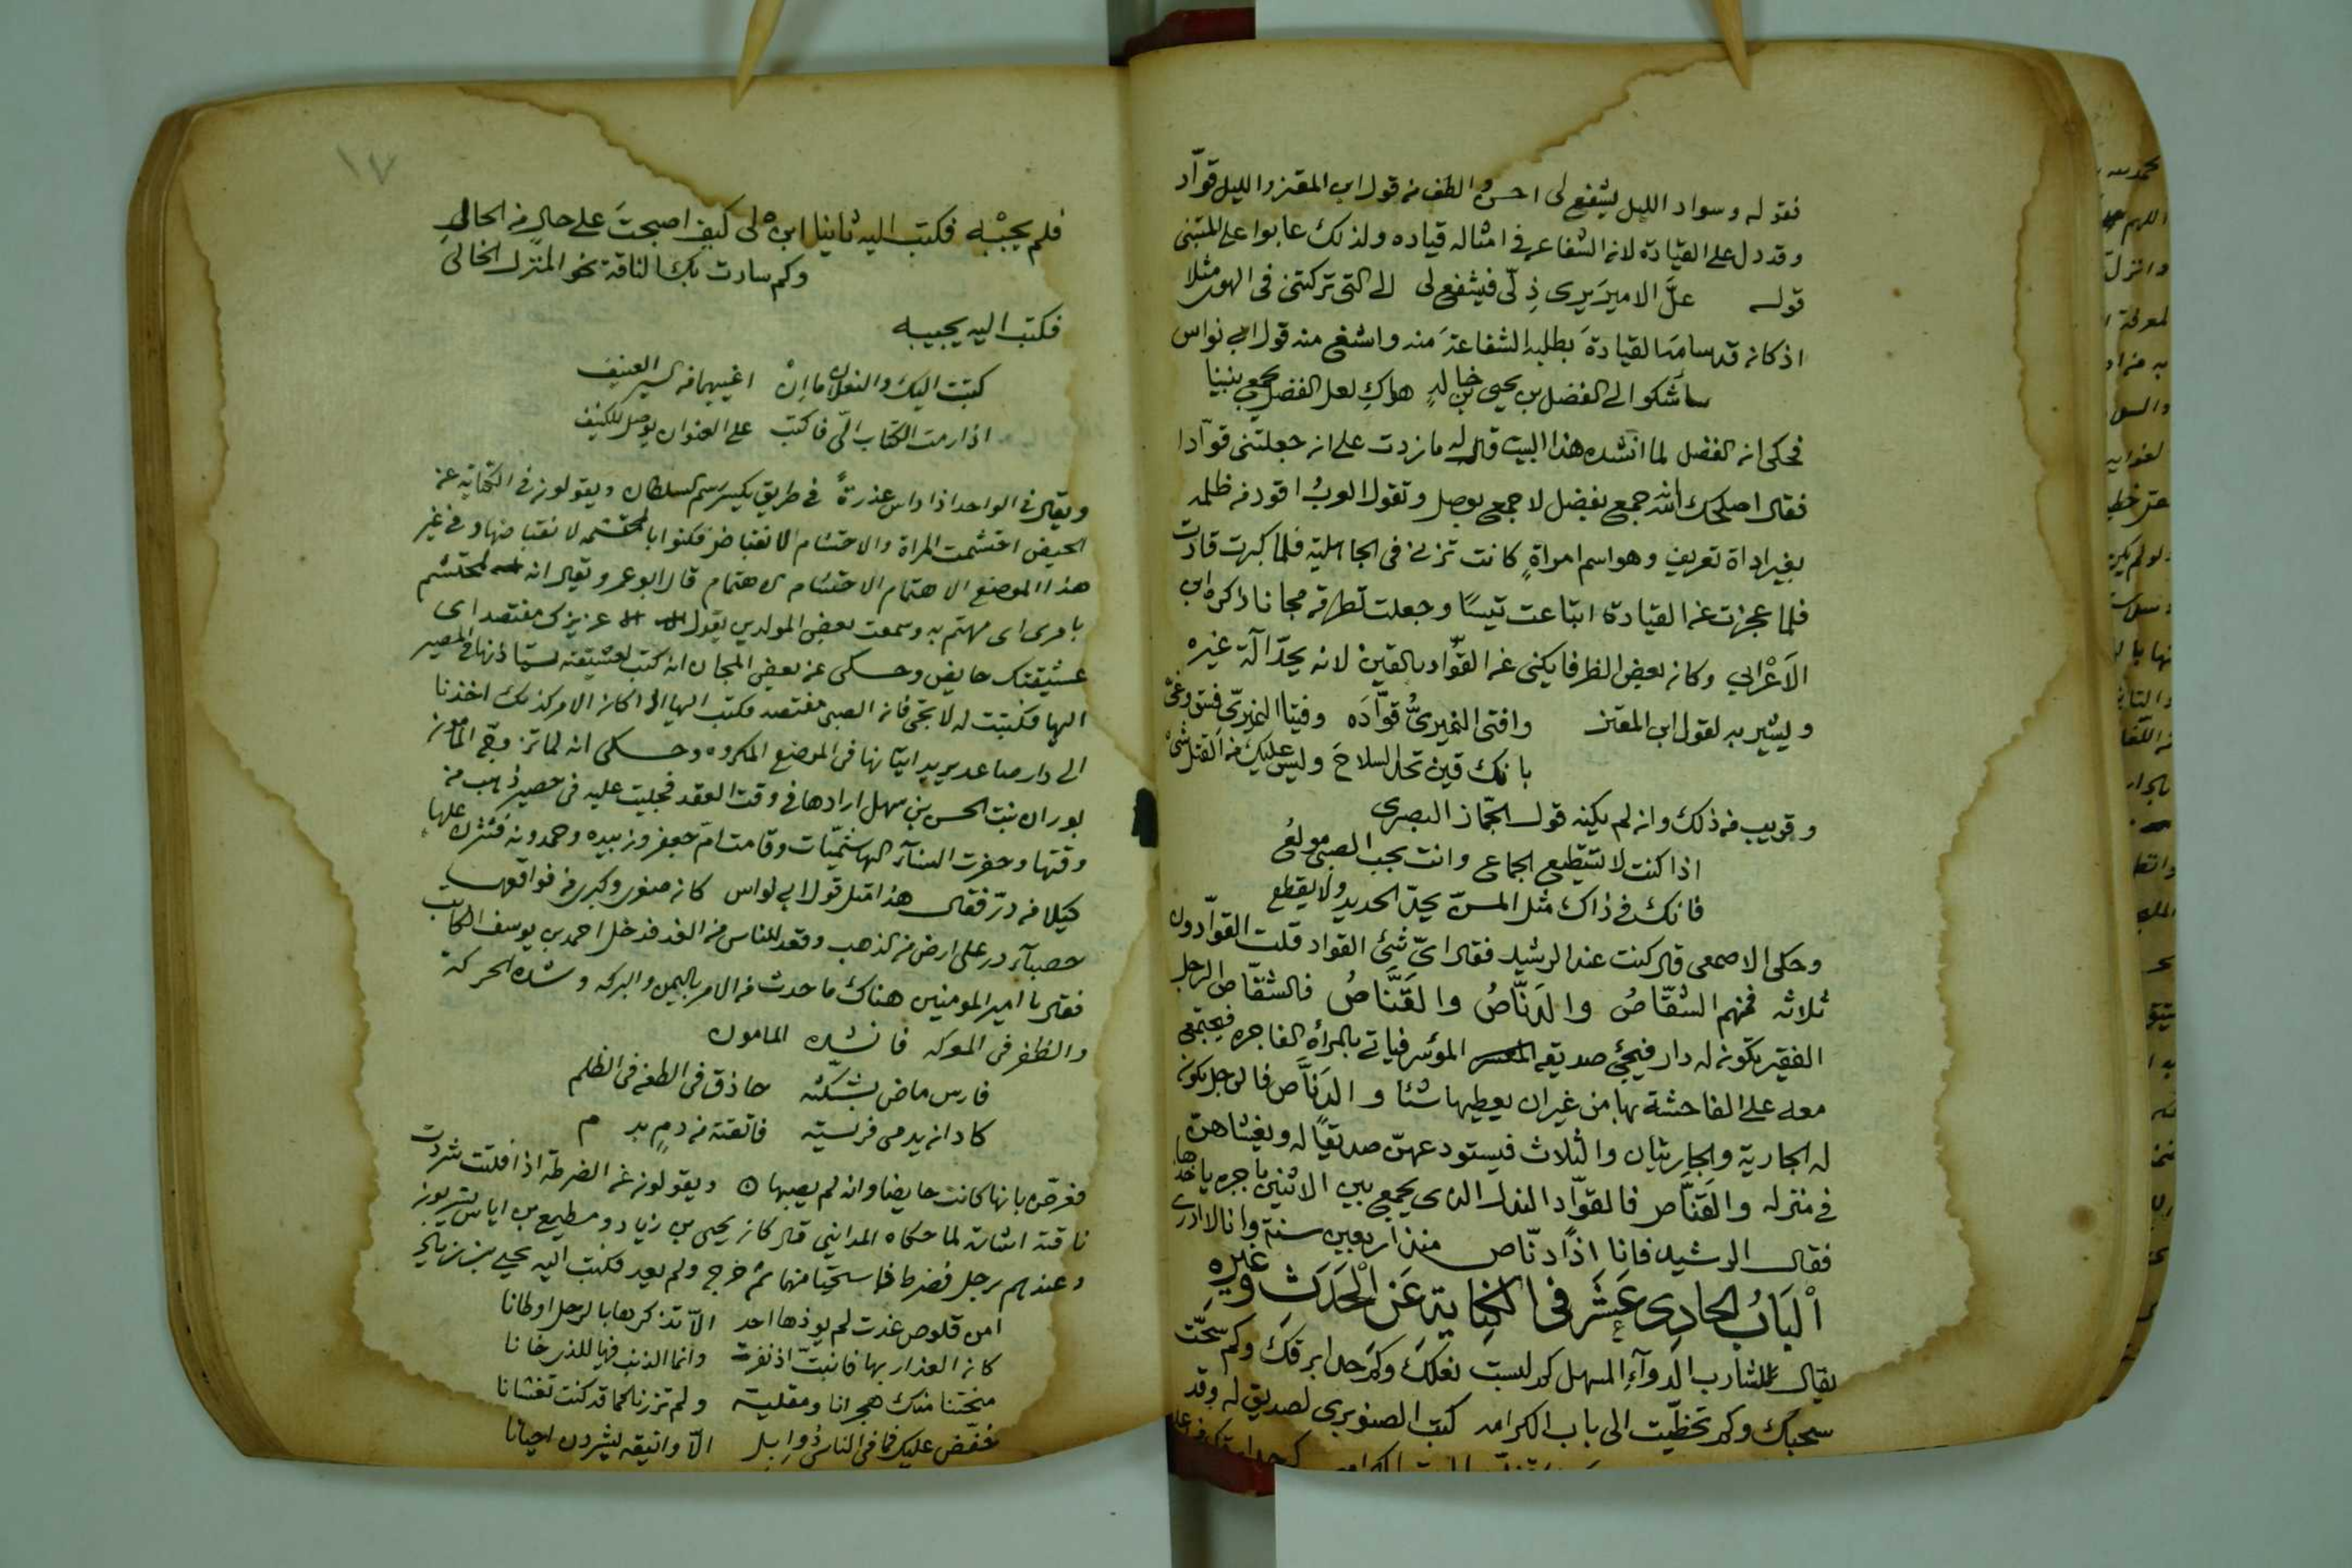 فقوله وسواد الليل يشفع لى احسن والطف من قول ابن المعتز والليل قوّاد
وقد دل على القيادة لان الشفاعه فى امثاله قياده ولذلك عابوا على المتنبى
قوله علَّ الامير يرى ذِلّى فيشفع لى الى التى تركتنى فى الهوى مثلا
اذ كان قد سامه القيادة بطلبه الشفاعة منه واشنع منه قول ابى نواس
سأشكو الى الفضل بن يحيى بن خالدٍ هواكِ لعل الفضل يجمع بيننا
فحكى ان الفضل لما انشده هذا البيت قال له ما زدت على ان جعلتنى قوّادا
فقال اصلحك الله جمع بفضل لا جمع بوصل وتقول العرب اقود من ظلمه
بغير اداة تعريف وهو اسم امراةٍ كانت تزنى فى الجاهلية فلما كبرت قادت
فلما عجزت عن القيادة ابتاعت تيسًا وجعلت تطرقه مجانا ذكره ابن
الاَعْرابي وكان بعض الظرفا يكنى عن القوّاد بالقين لانه يحدّ آلة غيره
ويشير به لقول ابن المعتز وافتى النميرىُّ قوّادَه وفتيا النميرىّ فسق وغىّ
بانك قين تحل السلاحَ وليس عليك من القتل شىْ
وقريب من ذلك وان لم يكنه قول الجمّاز البصرى
اذا كنت لا تستطيع الجماع وانت بحب الصبى مولعُ
فانك فى ذاك مثل المسنّ يحدّ الحديد ولا يقطع
وحكى الاصمعى قال كنت عند الرشيد فقال اىّ شئ القواد قلت القوّادون
ثلاثه فمنهم الشقّاصُ والدنّاصُ والقنّاصُ فالشقّاص الرجل
الفقير تكون له دار فيجئ صديقه الموسر فياتى بالمرأة الفاجره فيجتمعى
معه على الفاحشة بها من غير ان يعطيها شئا والدنّاص فالرجل تكون
له الجارية والجاريتان والثلاث فيستودعهنّ صديقًا له ويغشاهن
فى منزله والقنّاص فالقوّاد النذل الذى يجمع بين الاثنين باجره ياخذها
فقال الرشيد فانا اذًا دنّاص منذ اربعين سنة وانا لا ادرى
اَلْبَابُ الحادِى عَشَر فى الكنَايَةِ عَن الْحَدَث وغيره
يقال للشارب الدوآءِ المسهل كم لبست نعلكَ وكم حدا برقكَ وكم سحّت
سحبك وكم تخطّيت الى باب الكرامه كتب الصنوبرى لصديق له وقد
١٧
فلم يجبْه فكتب اليه ثانيا ابن لى كيف اصبحتَ على حالٍ من الحالِ
وكم سارت بك الناقة نحو المنزل الخالى
فكتب اليه يجيبه
كتبت اليك والنعلان ما اِنْ اغبهما من السير العنيف
اذا رمت الكتاب الىّ فاكتب على العنوان يوصل للكنيف
ويقال فى الواحد اذا داس عذرةً فى طريق يكسر رسم السلطان ويقولون فى الكناية عن
الحيض احتشمت المراة والاحتشام الانقباض فكنوا بالمحتشمه لانقباضها وفى غير
هذا الموضع الاهتمام الاحتشام الاهتمام قال ابو عمر ويقال انه لمحتشم
بامرى اى مهتم به وسمعت بعض المولدين يقول عزيزك مفتصد اى
عشيقتك حايض وحكى عن بعض المجان انه كتب لعشيقته يستاذنها فى المصير
اليها فكتبت له لا تجى فان الصبى مفتصد فكتب اليها اذا كان الامر كذلك اخذنا
الى دار صاعد يريد اتيانها فى الموضع المكروه وحكى انه لما تزوّج المامون
بوران بنت الحسن بن سهل ارادها فى وقت العقد فجليت عليه فى حصير ذهب من
وقتها وحضرت النسآء الهاشميّات وقامت امّ جعفر وزبيده وحمدونه فنثرن عليها
كيلا من درّ فقال هذا مثل قول ابى نواس كان صغرى وكبرى من فواقعها
حصبآء در على ارض من الذهب وقعد للناس من الغد فدخل احمد بن يوسف الكاتب
فقال يا امير المومنين هناك ما حدث من الامر باليمن والبركه وشدة الحركة
والظفر فى المعركه فانشده المامون
فارس ماض بشكّته حاذق فى الطعن فى الظلم
كاد انه يدمى فريسته فاتقته من دمٍ بد م
فعرّض بانها كانت حايضا وانه لم يصبها ويقولون عن الضرطه اذا افلتت شردت
ناقته اشارة لما حكاه المداينى قال كان يحيى بن زياد ومطيع بن اياس يشربون
وعندهم رجل فضرط فاستحيا منهما ثم خرج ولم يعد فكتب اليه يحيى بن زياد
امن قلوص غدت لم يوذها احد الاّ تذكرها بالرجل اوطانا
كان العذار بها فانبتّ اذ نفرت وانما الذنب فيها للذى خانا
منحتنا منك هجرانا ومقلية ولم تزرنا كما قد كنت تغشانا
خفّض عليك فما فى الناس ذو ابل الاّ واينقه يشردن احيانا